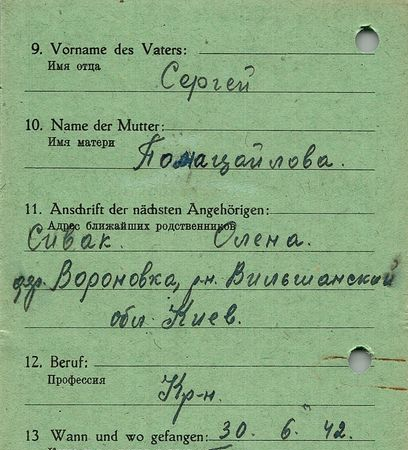 9. Vorname des Vaters:
Имя отца
Сергей
10. Name der Mutter:
Имя матери
Помацайлова.
11. Anschrift der nächsten Angehörigen:
Адрес ближайших родственников
Сивак. Олена.
дер. Вороновка, р-н. Вильшанской
обл. Киев.
12. Beruf:
Профессия
Кр-н.
13 Wann und wo gefangen: 30. 6. 42.